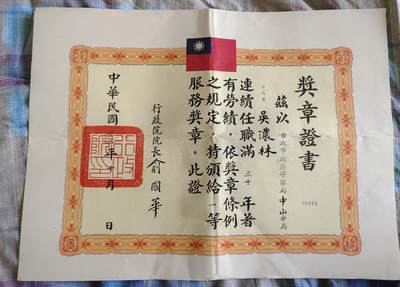 獎章證書
茲以
台北市政府警察局中山分局
吳濃林
連續任職滿三十年著
有勞績，依獎章條例
之規定，特頒給一等
服務獎章。此證
行政院院長俞國華
中華民國 年 月 日